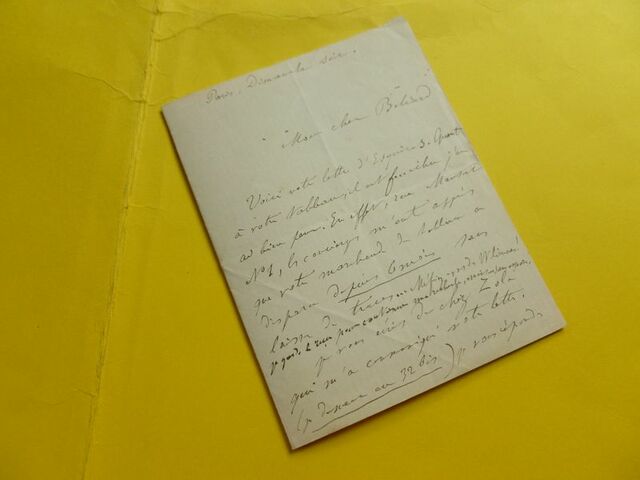 Paris, Dimanche soir.
Mon cher Béliard
Voici votre lettre d'Esquiros. Quant
à votre tableau, il est funèbre j'en
ai bien peur. En effet, rue Monsieur
N° 1, les concierges m'ont appris
que votre marchand de tableaux a
disparu depuis 6 mois sans
laisser de traces
je vous écris de chez Zola
qui m'a communiqué votre lettre.
(je demeure au 32 bis) je vous réponds